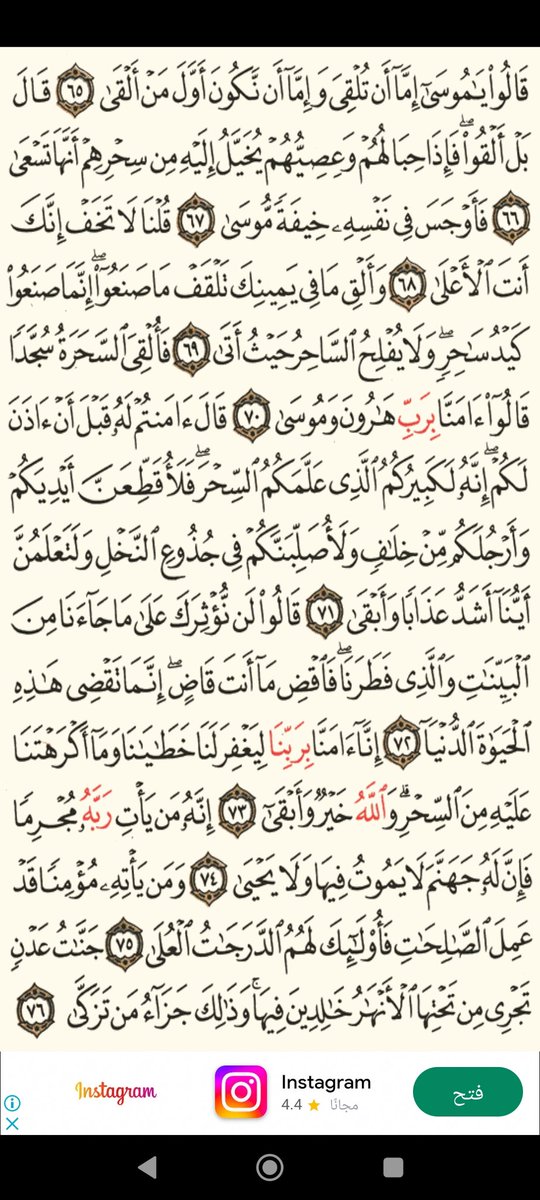 قَالُوا۟ يَـٰمُوسَىٰٓ إِمَّآ أَن تُلْقِىَ وَإِمَّآ أَن نَّكُونَ أَوَّلَ مَنْ أَلْقَىٰ ٦٥ قَالَ
بَلْ أَلْقُوا۟ ۖ فَإِذَا حِبَالُهُمْ وَعِصِيُّهُمْ يُخَيَّلُ إِلَيْهِ مِن سِحْرِهِمْ أَنَّهَا تَسْعَىٰ
٦٦ فَأَوْجَسَ فِى نَفْسِهِۦ خِيفَةً مُّوسَىٰ ٦٧ قُلْنَا لَا تَخَفْ إِنَّكَ
أَنتَ ٱلْأَعْلَىٰ ٦٨ وَأَلْقِ مَا فِى يَمِينِكَ تَلْقَفْ مَا صَنَعُوٓا۟ ۖ إِنَّمَا صَنَعُوا۟
كَيْدُ سَـٰحِرٍ ۖ وَلَا يُفْلِحُ ٱلسَّاحِرُ حَيْثُ أَتَىٰ ٦٩ فَأُلْقِىَ ٱلسَّحَرَةُ سُجَّدًا
قَالُوٓا۟ ءَامَنَّا بِرَبِّ هَـٰرُونَ وَمُوسَىٰ ٧٠ قَالَ ءَامَنتُمْ لَهُۥ قَبْلَ أَنْ ءَاذَنَ
لَكُمْ ۖ إِنَّهُۥ لَكَبِيرُكُمُ ٱلَّذِى عَلَّمَكُمُ ٱلسِّحْرَ ۖ فَلَأُقَطِّعَنَّ أَيْدِيَكُمْ
وَأَرْجُلَكُم مِّنْ خِلَـٰفٍ وَلَأُصَلِّبَنَّكُمْ فِى جُذُوعِ ٱلنَّخْلِ وَلَتَعْلَمُنَّ
أَيُّنَآ أَشَدُّ عَذَابًا وَأَبْقَىٰ ٧١ قَالُوا۟ لَن نُّؤْثِرَكَ عَلَىٰ مَا جَآءَنَا مِنَ
ٱلْبَيِّنَـٰتِ وَٱلَّذِى فَطَرَنَا ۖ فَٱقْضِ مَآ أَنتَ قَاضٍ ۖ إِنَّمَا تَقْضِى هَـٰذِهِ
ٱلْحَيَوٰةَ ٱلدُّنْيَآ ٧٢ إِنَّآ ءَامَنَّا بِرَبِّنَا لِيَغْفِرَ لَنَا خَطَـٰيَـٰنَا وَمَآ أَكْرَهْتَنَا
عَلَيْهِ مِنَ ٱلسِّحْرِ ۗ وَٱللَّهُ خَيْرٌ وَأَبْقَىٰٓ ٧٣ إِنَّهُۥ مَن يَأْتِ رَبَّهُۥ مُجْرِمًا
فَإِنَّ لَهُۥ جَهَنَّمَ لَا يَمُوتُ فِيهَا وَلَا يَحْيَىٰ ٧٤ وَمَن يَأْتِهِۦ مُؤْمِنًا قَدْ
عَمِلَ ٱلصَّـٰلِحَـٰتِ فَأُو۟لَـٰٓئِكَ لَهُمُ ٱلدَّرَجَـٰتُ ٱلْعُلَىٰ ٧٥ جَنَّـٰتُ عَدْنٍ
تَجْرِى مِن تَحْتِهَا ٱلْأَنْهَـٰرُ خَـٰلِدِينَ فِيهَا ۚ وَذَٰلِكَ جَزَآءُ مَن تَزَكَّىٰ ٧٦
Instagram
Instagram
4.4 ★ مجانًا
فتح